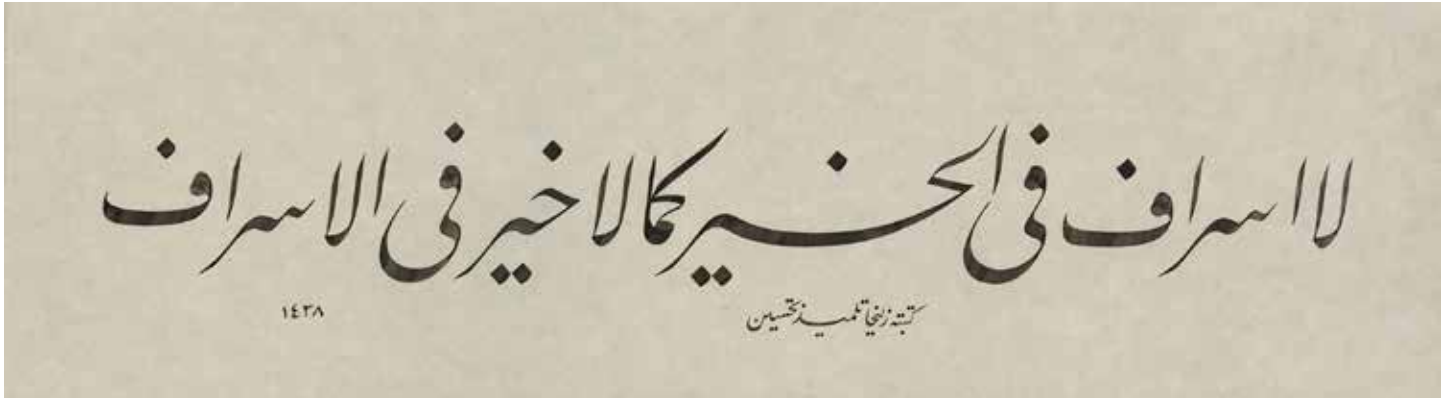 لا اسراف فى الخير كما لا خير فى الاسراف
كتبته زليخا تلميذ تحسين
١٤٣٨